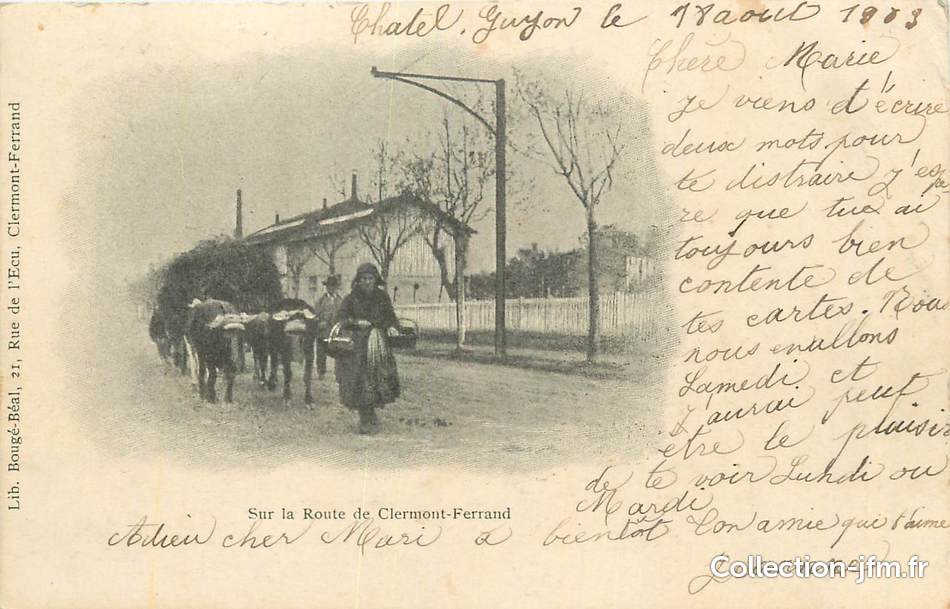 Chatel, Guyon le 18 aout 1903
Chère Marie
je viens d'écrire
deux mots pour
te distraire j'esp
re que tu ai
toujours bien
contente de
tes cartes. Nous
nous en allons
Samedi et
j'aurai peut
etre le plaisir
de te voir Lundi ou
Mardi
Adieu cher Mari a bientôt ton amie qui t'aime
Sur la Route de Clermont-Ferrand
Lib. Bougé-Béal, 21, Rue de l'Ecu, Clermont-Ferrand
Collection-jfm.fr